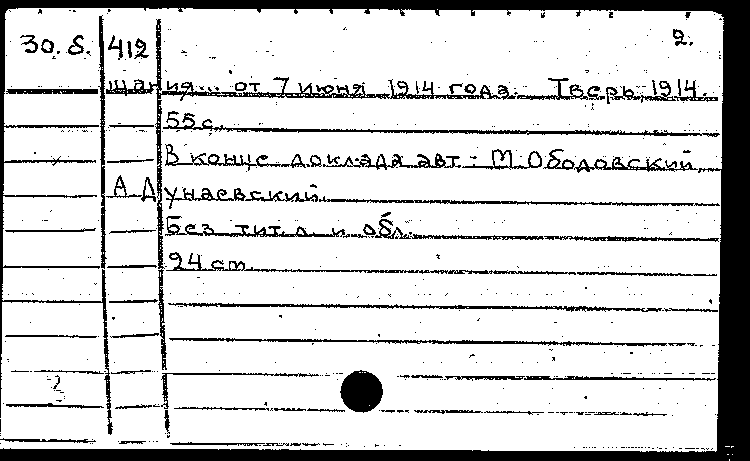 30.8. 412 2.
щания... от 7 июня 1914 года. Тверь, 1914.
55 с.
В конце доклада авт.: М. Ободовский,
А Дунаевский.
Без тит. л. и обл.
24 см.